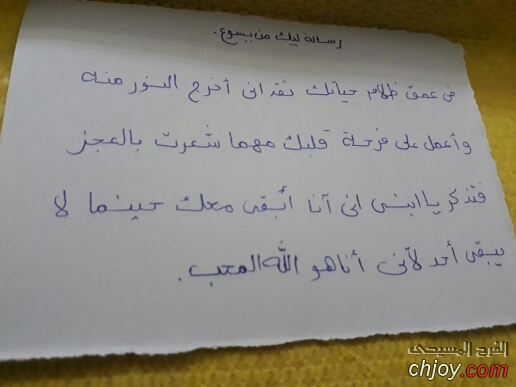 رسالة ليك من يسوع.
في عمق ظلام حياتك تقدانى أخرج النور منه
وأعمل على فرحة قلبك مهما شعرت بالعجز
فتذكر يا ابنى انى أنا أبقى معك حينما لا
يبقى أحد لأنى أنا هو الله المحب.
الفرح المسيحى
chjoy.com